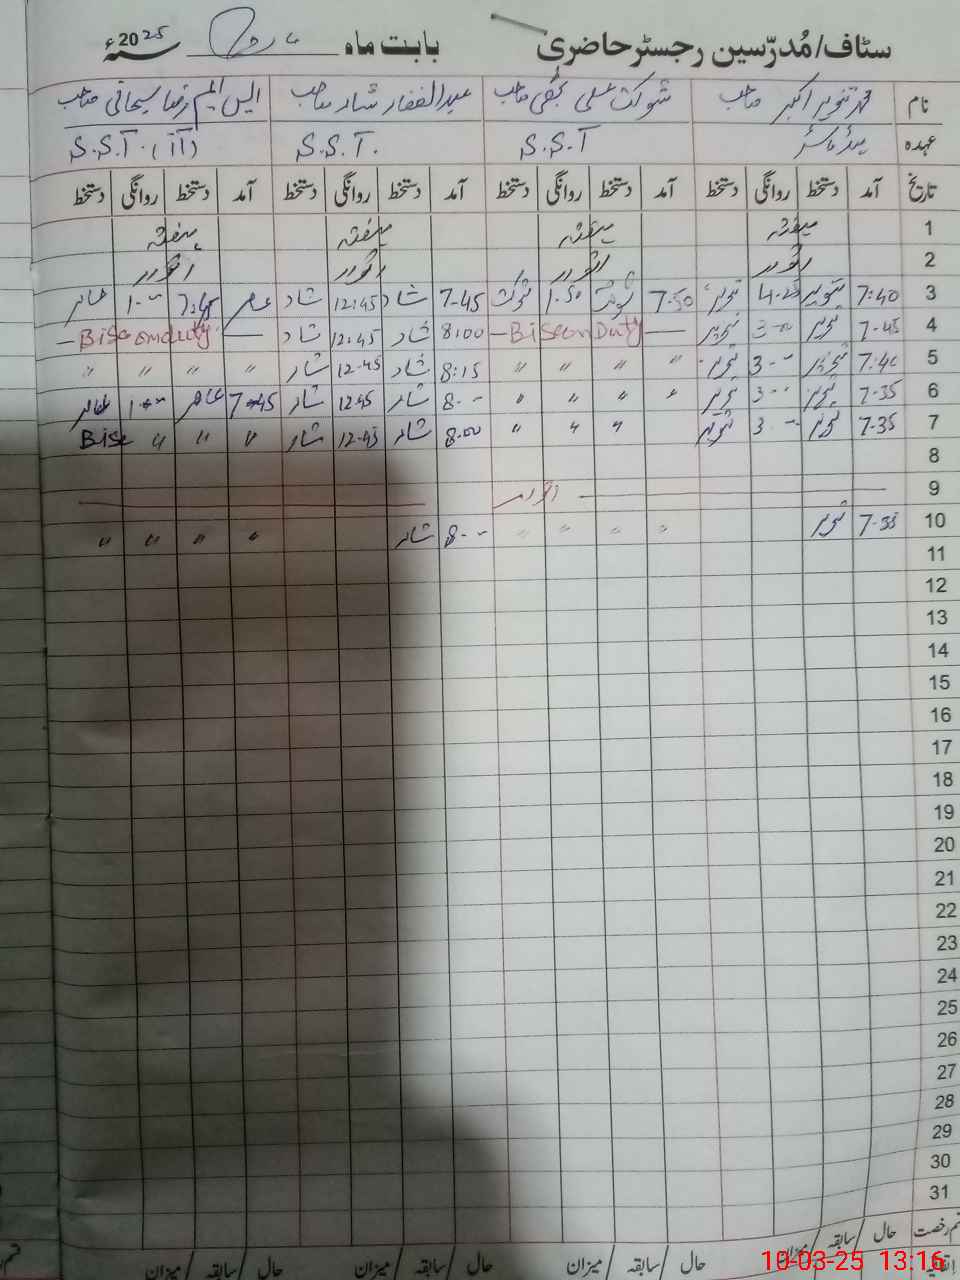 سٹاف/مُدرّسین رجسٹر حاضری بابت ماہ مارچ سنہ 2025ء
نام محمد تنویر اکبر صاحب شوکت علی نجفی صاحب عبدالغفار شاد صاحب ایس ایم رضا سبحانی صاحب
عہدہ ہیڈ ماسٹر S.S.T S.S.T. S.S.T.
تاریخ آمد دستخط روانگی دستخط آمد دستخط روانگی دستخط آمد دستخط روانگی دستخط آمد دستخط روانگی دستخط
1 ہفتہ ہفتہ ہفتہ ہفتہ
2 اتوار اتوار اتوار اتوار
3 7:40 تنویر تنویر 7:50 شوکت 1:50 شوکت 7-45 شاد 12:45 شاد 7:45
4 7-45 تنویر 3-00 تنویر — Bise on Duty — 8:00 شاد 12.45 شاد — Bise on duty —
5 تنویر 3-- تنویر " " " " 8:15 شاد 12-45 شاد " " " "
6 7-35 تنویر 3-- تنویر " " " " 8-- شاد 12.45 شاد 7-45
7 7-35 تنویر 3-- تنویر " " " 8.00 شاد 12-45 شاد " " " Bise
8
9 اتوار
10 7-35 تنویر " " " " 8-- شاد " " " "
11
12
13
14
15
16
17
18
19
20
21
22
23
24
25
26
27
28
29
30
31
قسم رخصت حال / سابقہ / میزان حال / سابقہ / میزان حال / سابقہ / میزان حال / سابقہ / میزان
اتفاقیہ
10-03-25 13:16